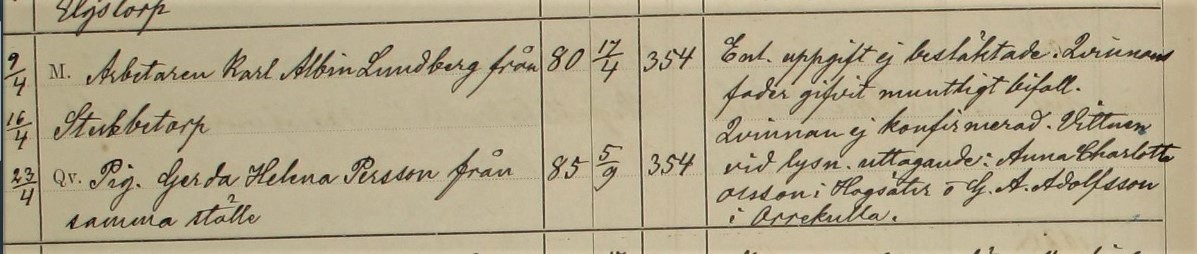 Elgstorp
9/4 M. Arbetaren Karl Albin Lundberg från 80 17/4 354 Enl. uppgift ej besläktade. Qvinnans
fader gifvit muntligt bifall.
16/4 Stubbetorp Qvinnan ej konfirmerad. Vittnen
23/4 Qv. Pig. Gerda Helena Persson från 85 5/9 354 vid lysn. uttagande: Anna Charlotte
samma ställe Olsson i Hogsäter o G. A. Adolfsson
i Orrekulla.